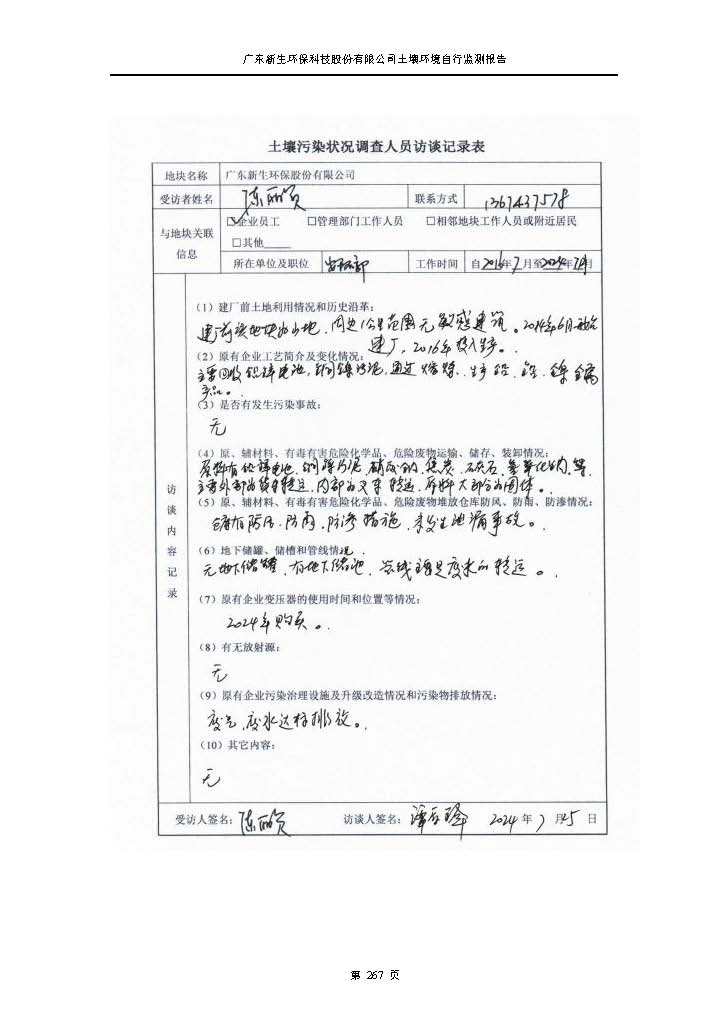 广东新生环保科技股份有限公司土壤环境自行监测报告
土壤污染状况调查人员访谈记录表
地块名称 广东新生环保股份有限公司
受访者姓名 陈丽 联系方式
与地块关联信息 ☑企业员工 □管理部门工作人员 □相邻地块工作人员或附近居民
□其他
所在单位及职位 安环部 工作时间 自2016年7月至2024年7月
访谈内容记录
(1)建厂前土地利用情况和历史沿革:
建厂前该地块为山地,周边1公里范围无敏感建筑。2014年6月开始
建厂,2016年投入生产。
(2)原有企业工艺简介及变化情况:
主要回收铅锌电池,铜镍污泥,通过熔炼,生产铅、
产品。
(3)是否有发生污染事故:
无
(4)原、辅材料、有毒有害危险化学品、危险废物运输、储存、装卸情况:
原料有 电池、铜镍污泥、焦炭、石灰石、等
主要外部为货车转运,内部为叉车转运,原料大部分为固体。
(5)原、辅材料、有毒有害危险化学品、危险废物堆放仓库防风、防雨、防渗情况:
仓库有防风、防雨、防渗措施,未发生泄漏事故。
(6)地下储罐、储槽和管线情况
无地下储罐、有地下储池、管线主要是废水的转运。
(7)原有企业变压器的使用时间和位置等情况:
2024年购买。
(8)有无放射源:
无
(9)原有企业污染治理设施及升级改造情况和污染物排放情况:
废气、废水达标排放。
(10)其它内容:
无
受访人签名:陈丽 访谈人签名: 2024年7月25日
第 267 页